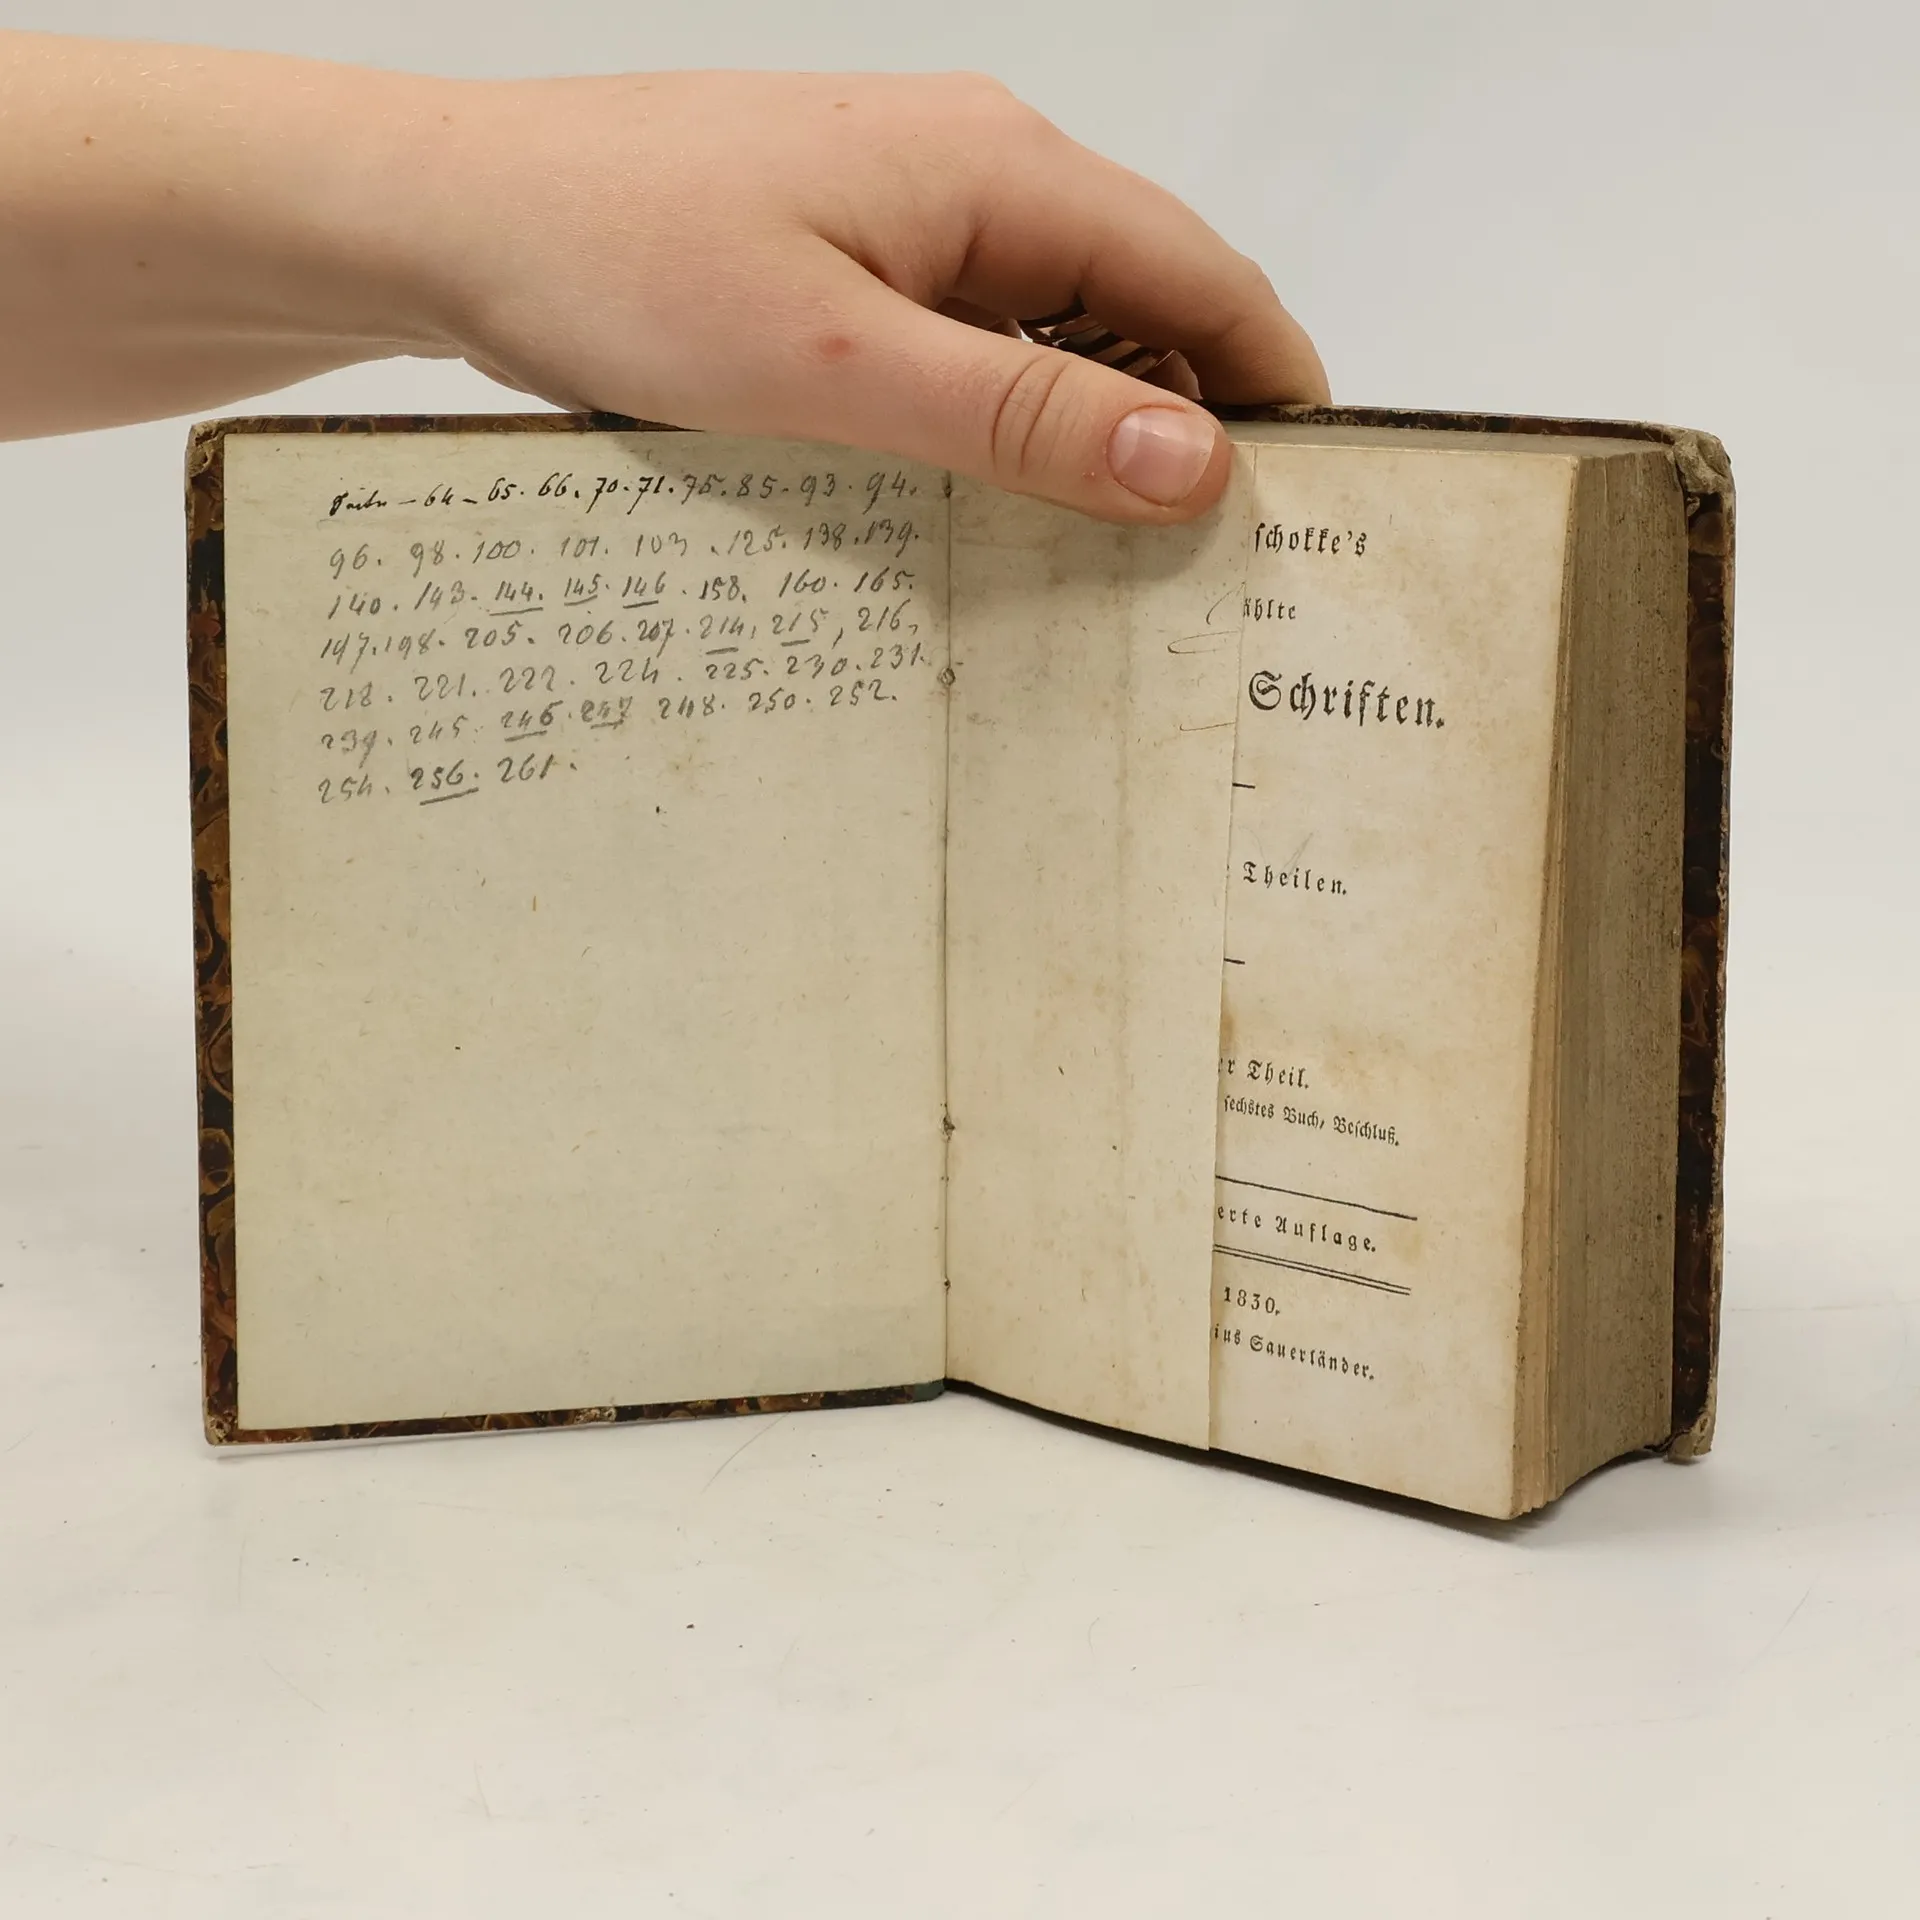 Seite – 64 – 65. 66. 70. 71. 75. 85. 93. 94.
96. 98. 100. 101. 103. 125. 138. 139.
140. 143. 144. 145. 146. 158. 160. 165.
197. 198. 205. 206. 207. 214, 215, 216,
218. 221. 222. 224. 225. 230. 231.
239. 245. 246. 247 248. 250. 252.
254. 256. 261.
schokke's
ählte
Schriften.
Theilen.
er Theil.
sechstes Buch, Beschluß.
erte Auflage.
1830.
ius Sauerländer.